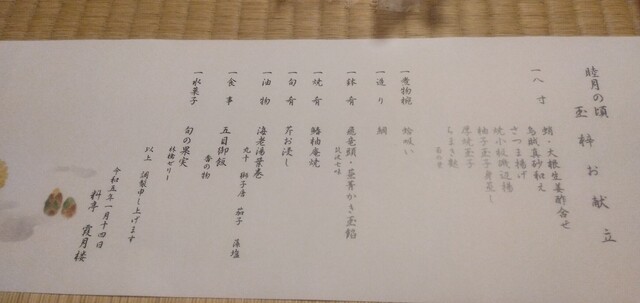 睦月の頃
玉梓お献立
一八寸
蛸・大根生姜酢合せ
烏賊真砂和え
さつま揚げ
焼小紋磯辺揚
柚子玉子身蒸し
厚焼玉子
ちまき麩
一煮物椀 蛤吸い
一造り 鯛
一鉢肴 飛竜頭・韮菁かき玉餡
一焼肴 鰆柚庵焼
一旬肴 芹お浸し
一油物 海老湯葉巻
丸十 獅子唐 茄子 藻塩
一食事 五目御飯
香の物
一水菓子 旬の果実
林檎ゼリー
以上 調製申し上げます
令和五年一月十四日
料亭 霞月楼